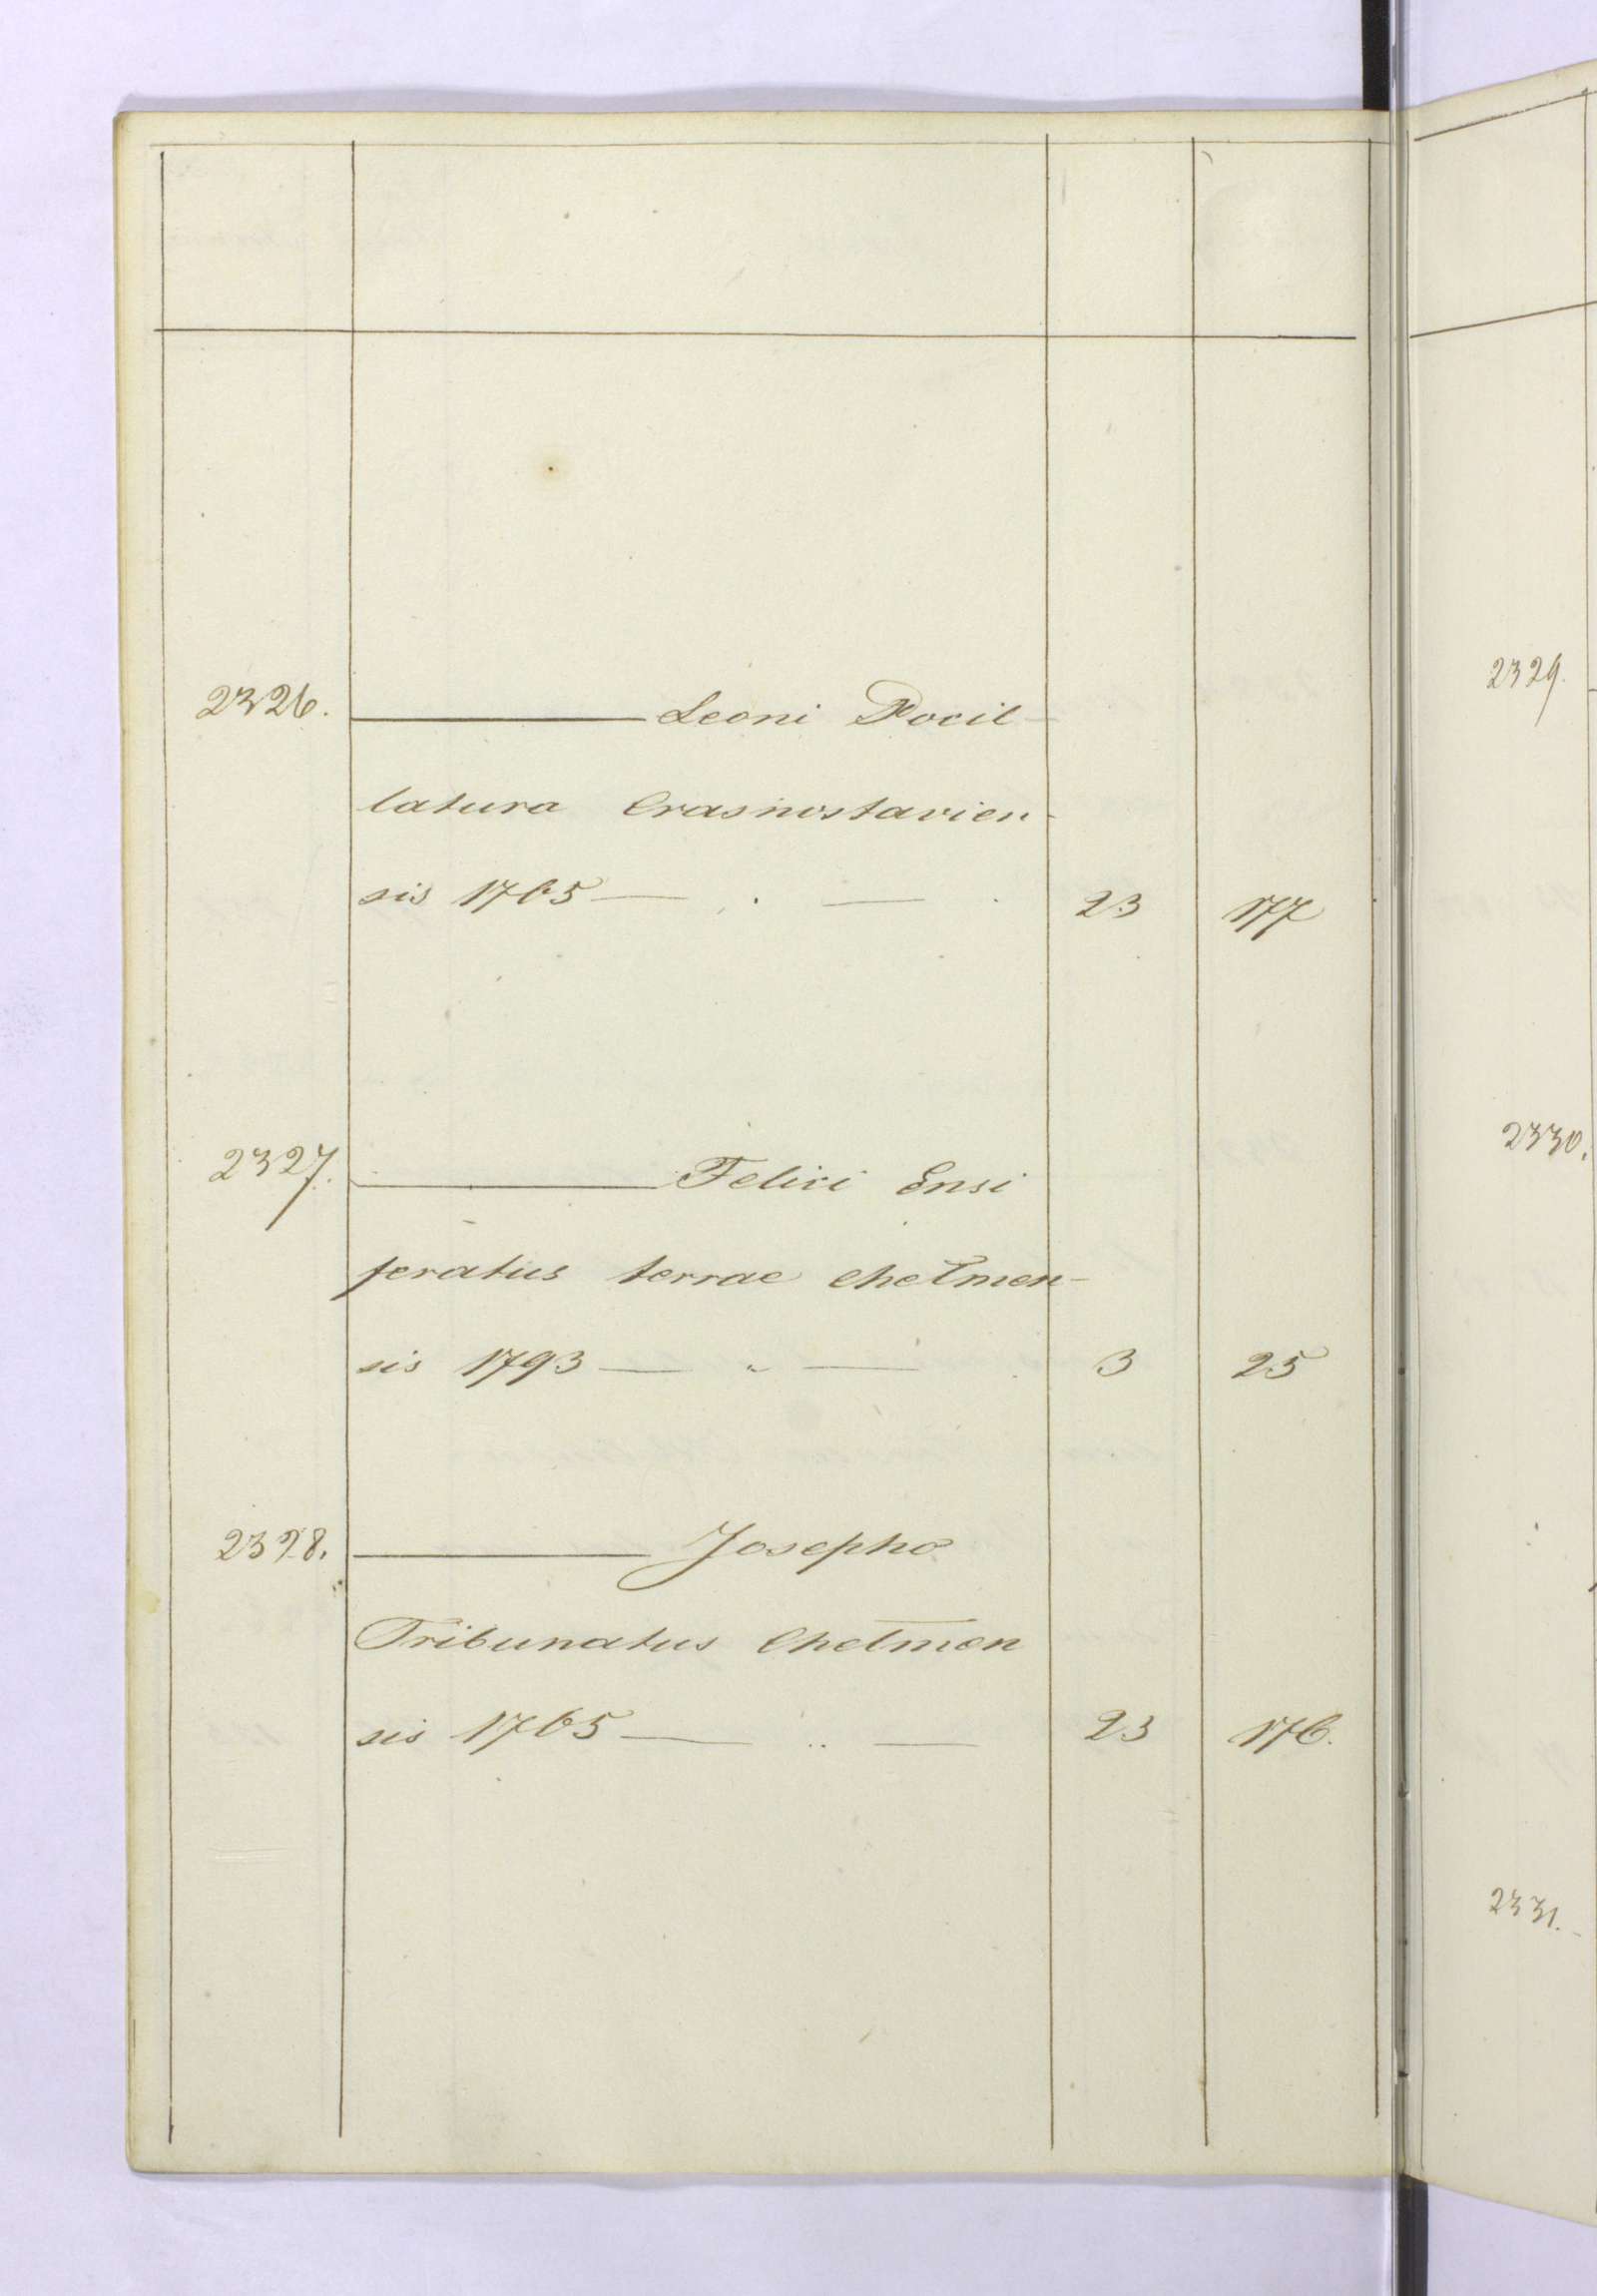 2326. ——— Leoni Pocil-
latura Crasnostavien-
sis 1765 — . — 23 177
2327. ——— Felici Ensi
feratus terrae Chełmen-
sis 1793 — " — 3 25
2328. ——— Josepho
Tribunatus Chełmen
sis 1765 — .. — 23 176.
2329.
2330.
2331.